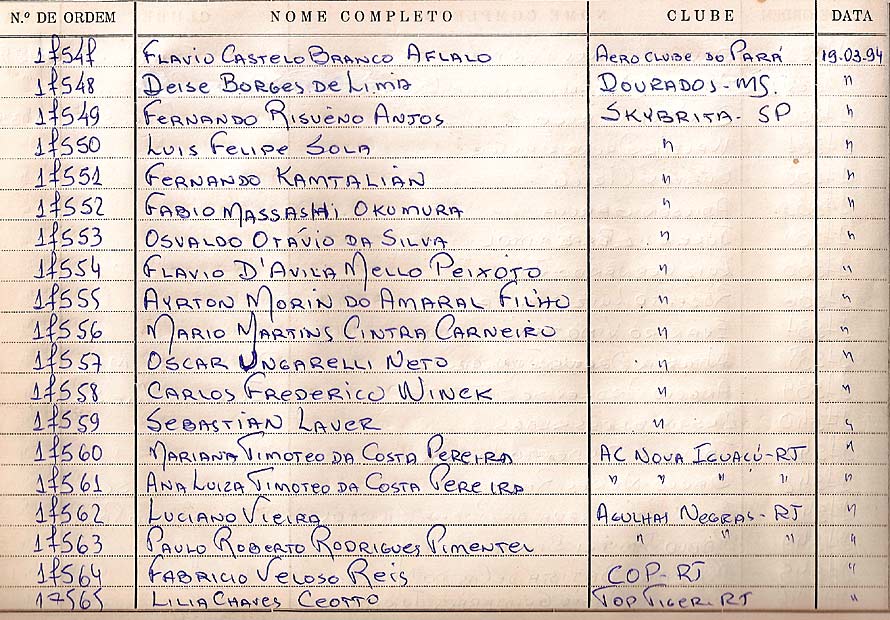 N.º DE ORDEM NOME COMPLETO CLUBE DATA
17547 FLAVIO CASTELO BRANCO AFLALO AEROCLUBE DO PARÁ 19.03.94
17548 DEISE BORGES DE LIMA DOURADOS - MS. "
17549 FERNANDO RISUENO ANJOS SKYBRITA - SP "
17550 LUIS FELIPE SOLA " "
17551 FERNANDO KAMTALIAN " "
17552 FABIO MASSASHI OKUMURA " "
17553 OSVALDO OTÁVIO DA SILVA " "
17554 FLAVIO D'AVILA MELLO PEIXOTO " "
17555 AYRTON MORIN DO AMARAL FILHO " "
17556 MARIO MARTINS CINTRA CARNEIRO " "
17557 OSCAR UNGARELLI NETO " "
17558 CARLOS FREDERICO WINCK " "
17559 SEBASTIAN LAVER " "
17560 MARIANA TIMOTEO DA COSTA PEREIRA AC NOVA IGUAÇÚ-RJ "
17561 ANA LUIZA TIMOTEO DA COSTA PEREIRA " " " " "
17562 LUCIANO VIEIRA AGULHAS NEGRAS - RJ "
17563 PAULO ROBERTO RODRIGUES PIMENTEL " " " "
17564 FABRICIO VELOSO REIS COP-RJ "
17565 LILIA CHAVES CEOTTO TOP TIGER-RJ "